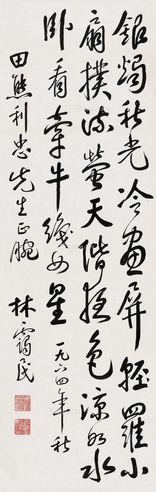 銀燭秋光冷画屏輕羅小
扇撲流螢天階夜色涼如水
卧看牽牛織女星 一九六四年秋
田熊利忠先生正腕 林靄民